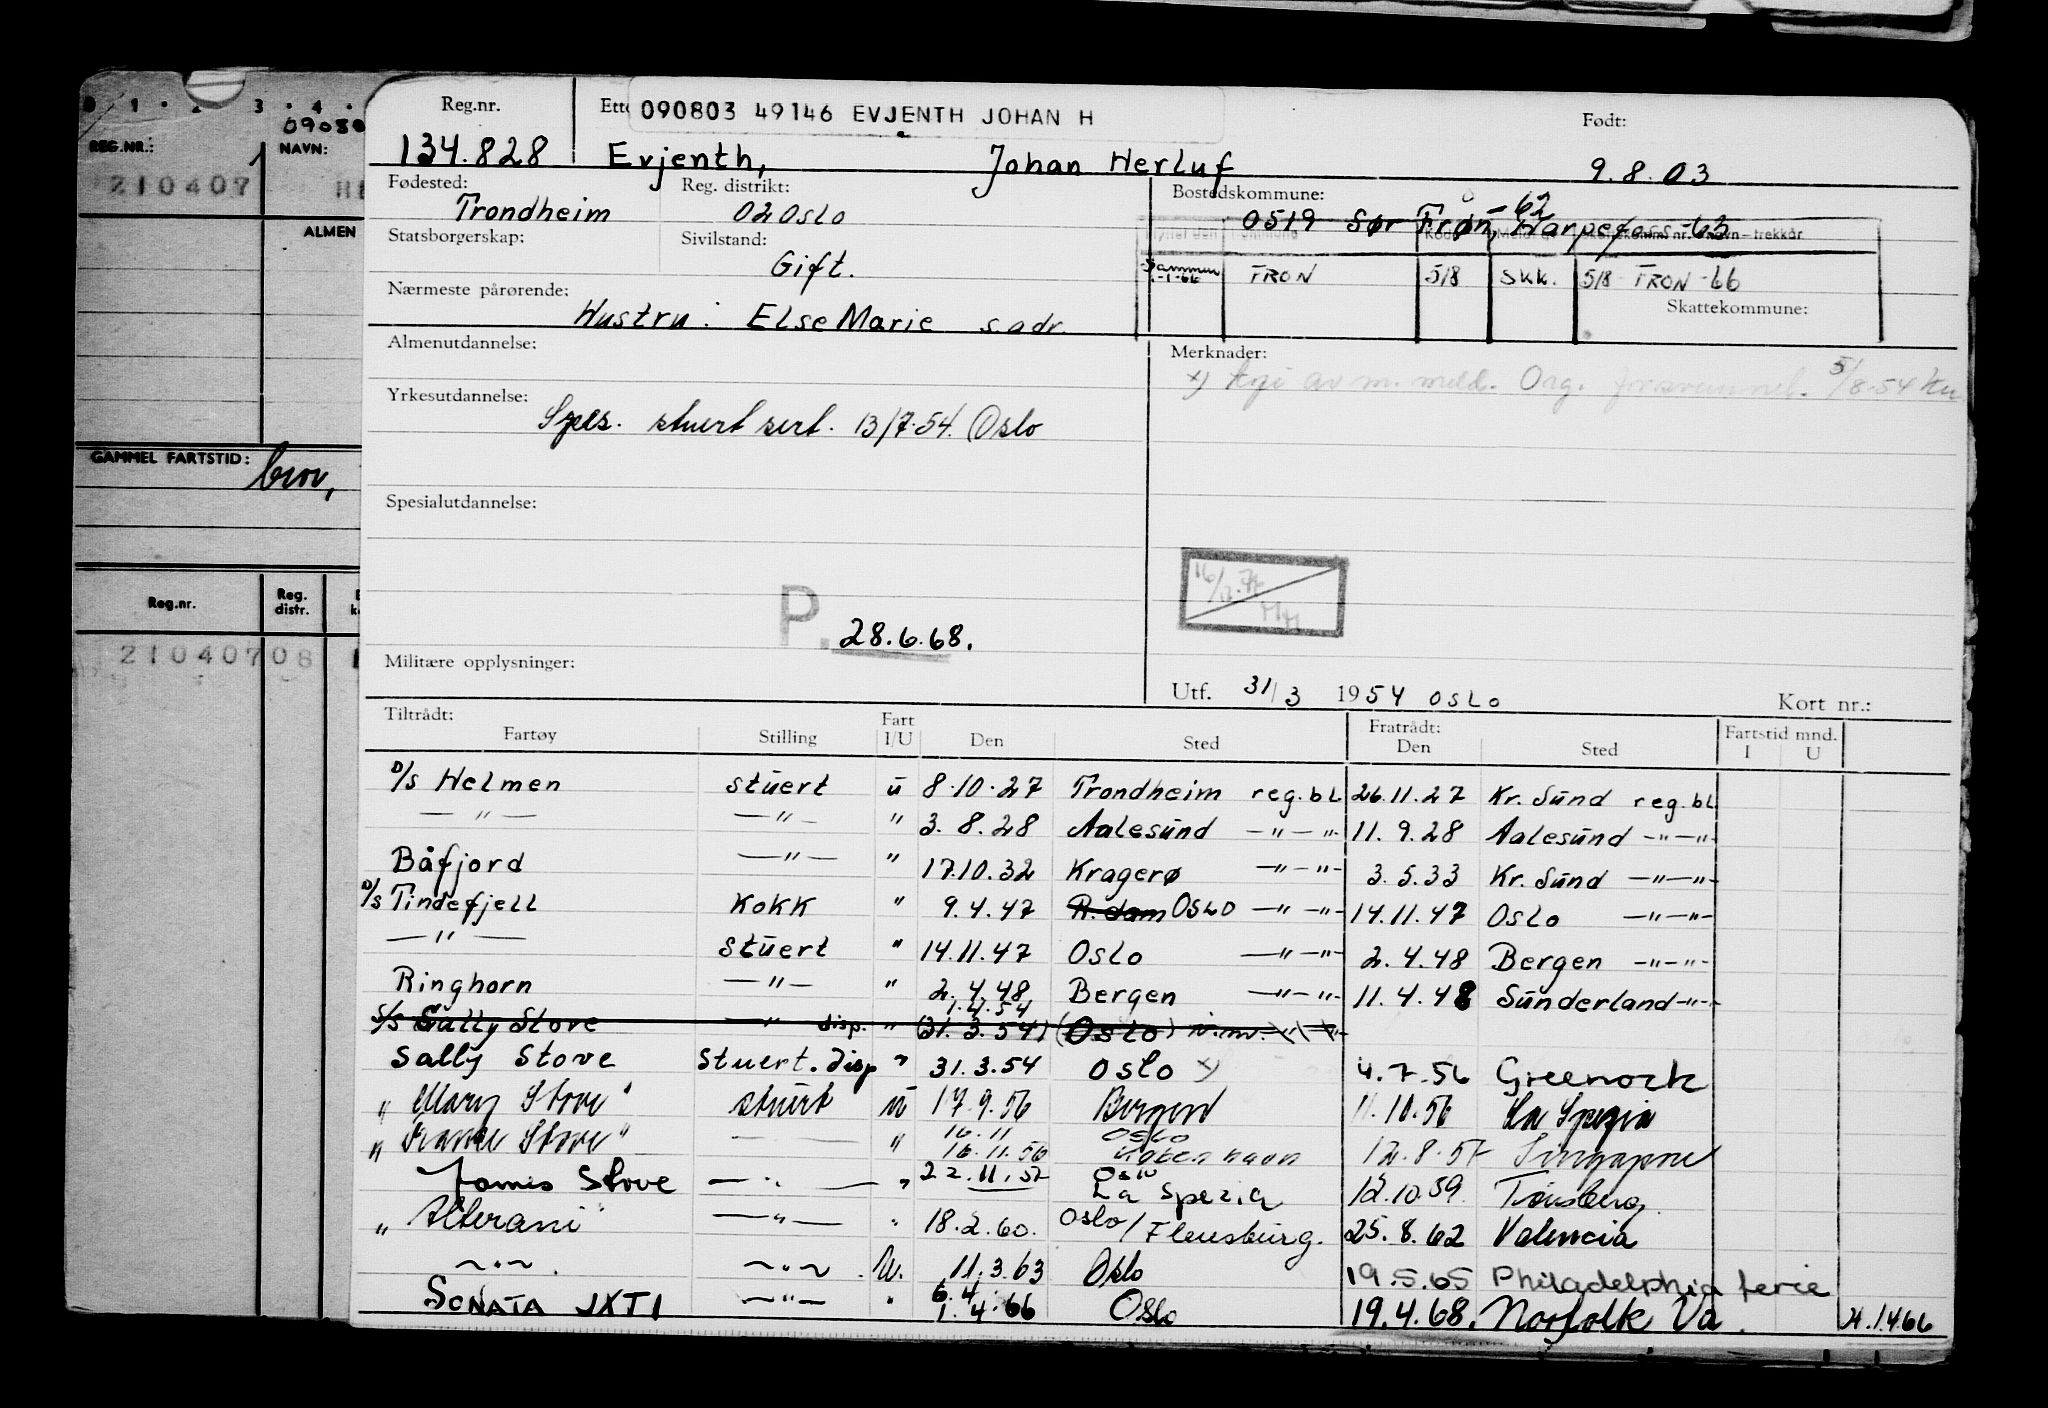 0 . 1 . 2 . 3 . 4 .
09080
REG.NR.:
NAVN:
210407
ALMEN
GAMMEL FARTSTID:
Reg.nr.
Reg. distr.
21040708
Reg.nr.
Ette
090803 49146 EVJENTH JOHAN H
Født:
134.828
Evjenth, Johan Herluf
9.8.03
Fødested:
Trondheim
Reg. distrikt:
02 Oslo
Bostedskommune:
0519 Sør Fron, -62 Harpefoss -63
Statsborgerskap:
Sivilstand:
Gift.
Sammen -1-66 FRON 518 Skk. 518 FRON -66
Skattekommune:
Nærmeste pårørende:
Hustru: Else Marie s.adr.
Almenutdannelse:
Merknader:
x) av m. meld. Org. 5/8.54
Yrkesutdannelse:
Spes. stuert sert. 13/7.54. Oslo
Spesialutdannelse:
P. 28.6.68.
Militære opplysninger:
Utf. 31/3 1954 OSLO
Kort nr.:
Tiltrådt:
Fartøy Stilling Fart I/U Den Sted Fratrådt: Den Sted Fartstid mnd. I U
D/s Helmen stuert u 8.10.27 Trondheim reg.bl. 26.11.27 Kr. Sund reg.bl
—"— —"— " 3.8.28 Aalesund —"—"- 11.9.28 Aalesund —"—"-
Båfjord —"— " 17.10.32 Kragerø —"—"- 3.5.33 Kr. Sund —"—"-
D/s Tindefjell Kokk " 9.4.47 R.dam Oslo —"—"- 14.11.47 Oslo —"—"-
—"— stuert " 14.11.47 Oslo —"—"- 2.4.48 Bergen —"—"-
Ringhorn —"— " 2.4.48 Bergen —"—"- 11.4.48 Sunderland —"-
1.4.54
S/s Sally Stove —"— disp. " (31.3.54) (Oslo)
Sally Stove Stuert. disp " 31.3.54 Oslo x) 4.7.56 Greenock
" Mary Stove" stuert u 17.9.56 Bergen 11.10.56 La Spezia
16.11 Oslo
" Stove" — " 16.11.56 København 12.8.57 Singapore
22.11.57 Oslo
James Stove —"— " La Spezia 12.10.59. Tønsberg.
" Alterani" —"— " 18.2.60. Oslo/Flensburg. 25.8.62 Valencia
~"~ ~"~ U. 11.3.63 Oslo 19.5.65 Philadelphia ferie
6.4.
SONATA JXTI ~"~ " 1.4.66 Oslo 19.4.68. Norfolk Va. 1.4.66